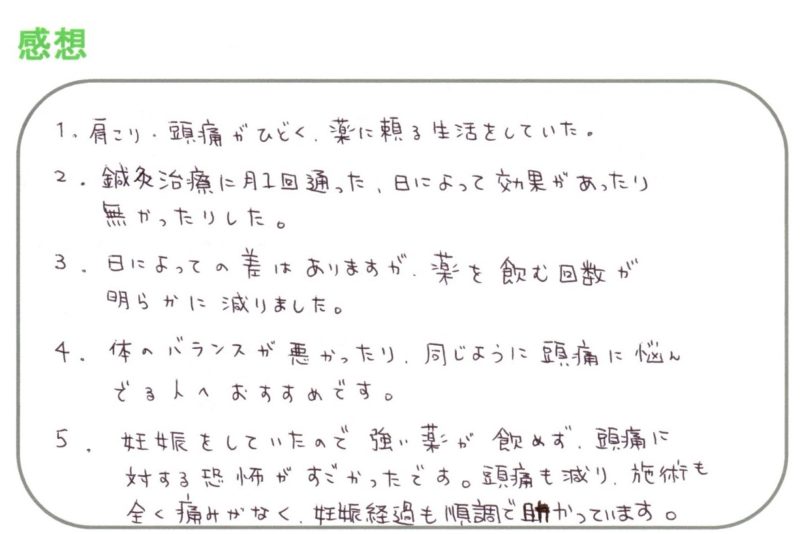 感想
1. 肩こり・頭痛がひどく、薬に頼る生活をしていた。
2. 鍼灸治療に月1回通った、日によって効果があったり
無かったりした。
3. 日によっての差はありますが、薬を飲む回数が
明らかに減りました。
4. 体のバランスが悪かったり、同じように頭痛に悩ん
でる人へおすすめです。
5. 妊娠をしていたので強い薬が飲めず、頭痛に
対する恐怖がすごかったです。頭痛も減り、施術も
全く痛みがなく、妊娠経過も順調で助かっています。